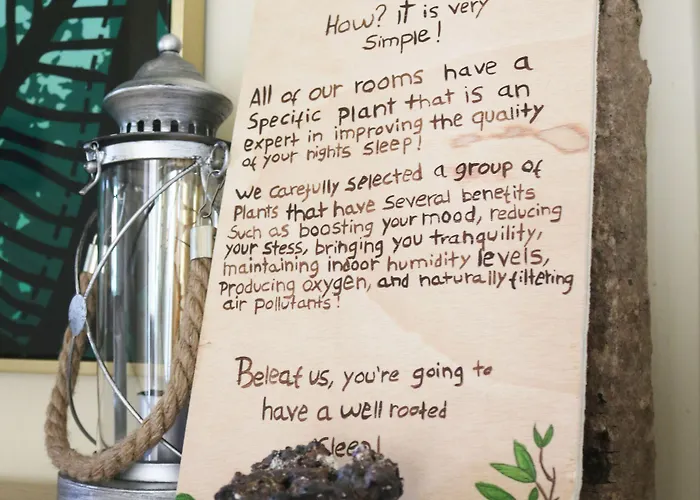 How? it is very
Simple!
All of our rooms have a
Specific plant that is an
expert in improving the quality
of your nights sleep!
we carefully selected a group of
Plants that have several benefits
Such as boosting your mood, reducing
your stess, bringing you tranquility,
maintaining indoor humidity levels,
Producing oxygen, and naturally filtering
air pollutants!
Beleaf us, you're going to
have a well rooted
Sleep!